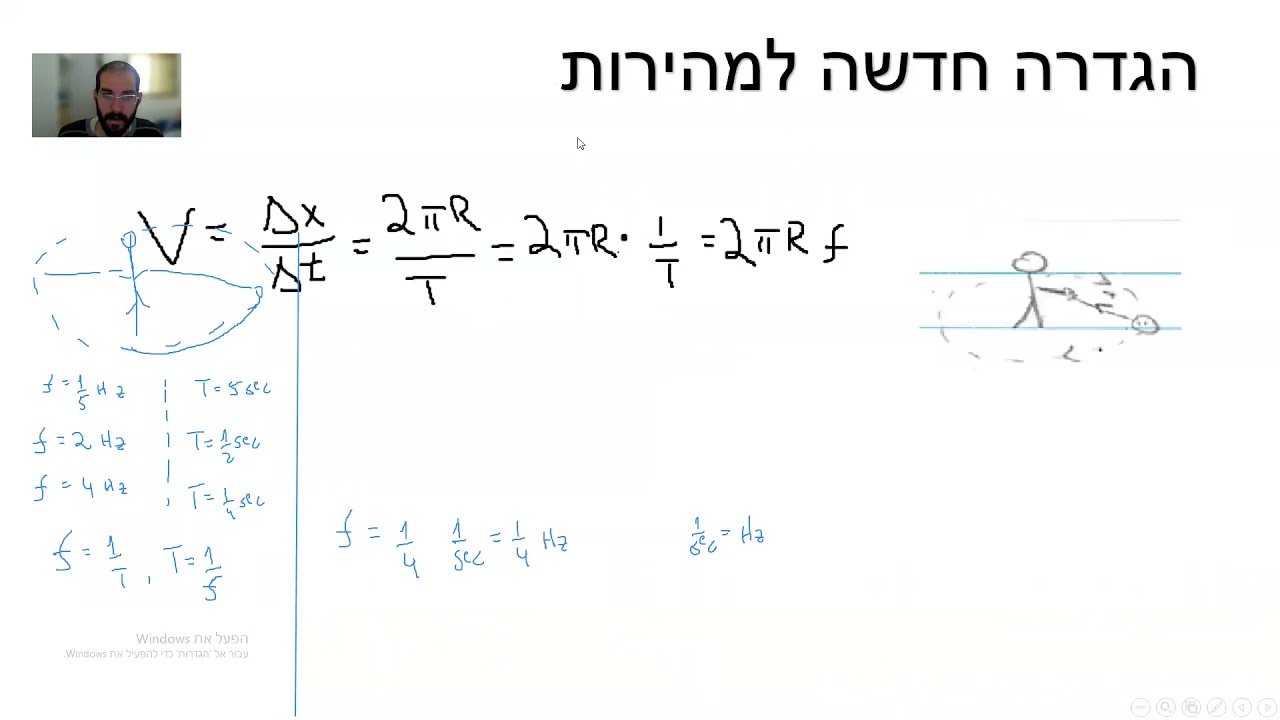 הגדרה חדשה למהירות
V = Δx/Δt = 2πR/T = 2πR · 1/T = 2πR f
f = 1/5 Hz | T = 5 sec
f = 2 Hz | T = 1/2 sec
f = 4 Hz | T = 1/4 sec
f = 1/T , T = 1/f
f = 1/4 1/sec = 1/4 Hz
1/sec = Hz
הפעל את Windows
עבור אל 'הגדרות' כדי להפעיל את Windows.